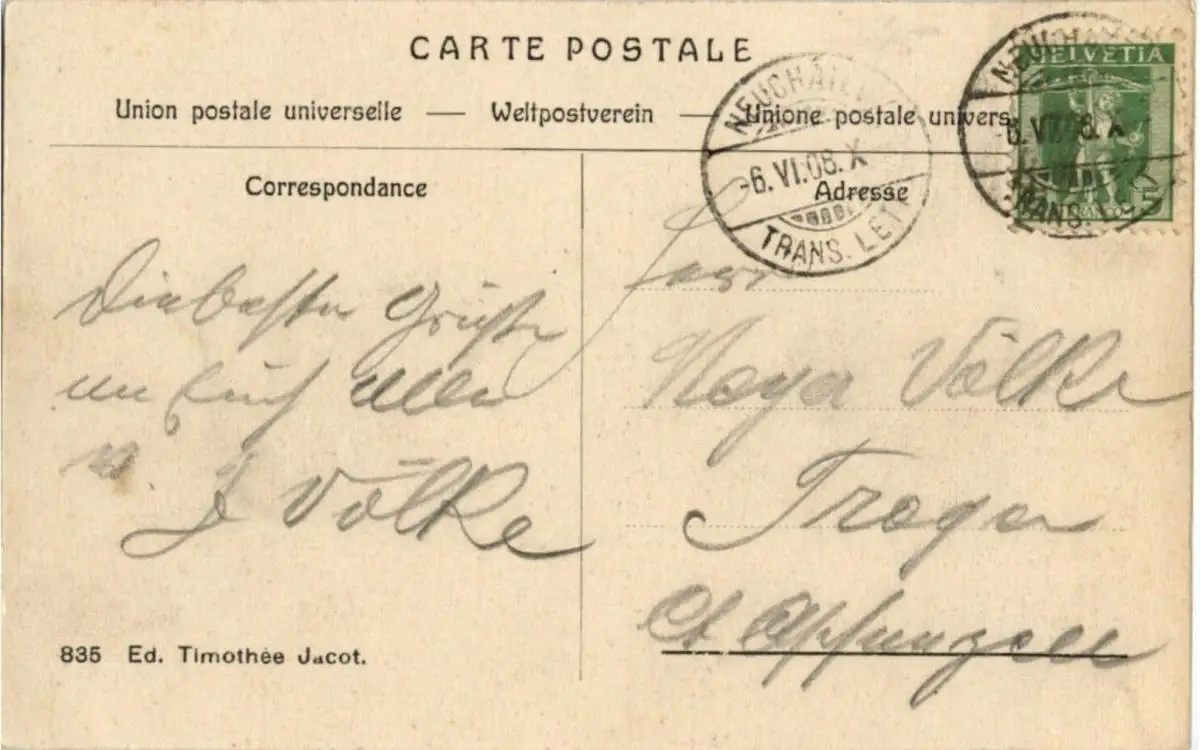 CARTE POSTALE
Union postale universelle — Weltpostverein — Unione postale univers
NEUCHÂTEL
-6.VI.08.X
TRANS. LET
NEUCHÂ
HELVETIA
6.VI.08.X
TRANS.
5
Correspondance
Adresse
Die besten Grüsse
an Euch Allen
J Völke
Herr
Völke
Trogen
Ct Appenzell
835 Ed. Timothée Jacot.